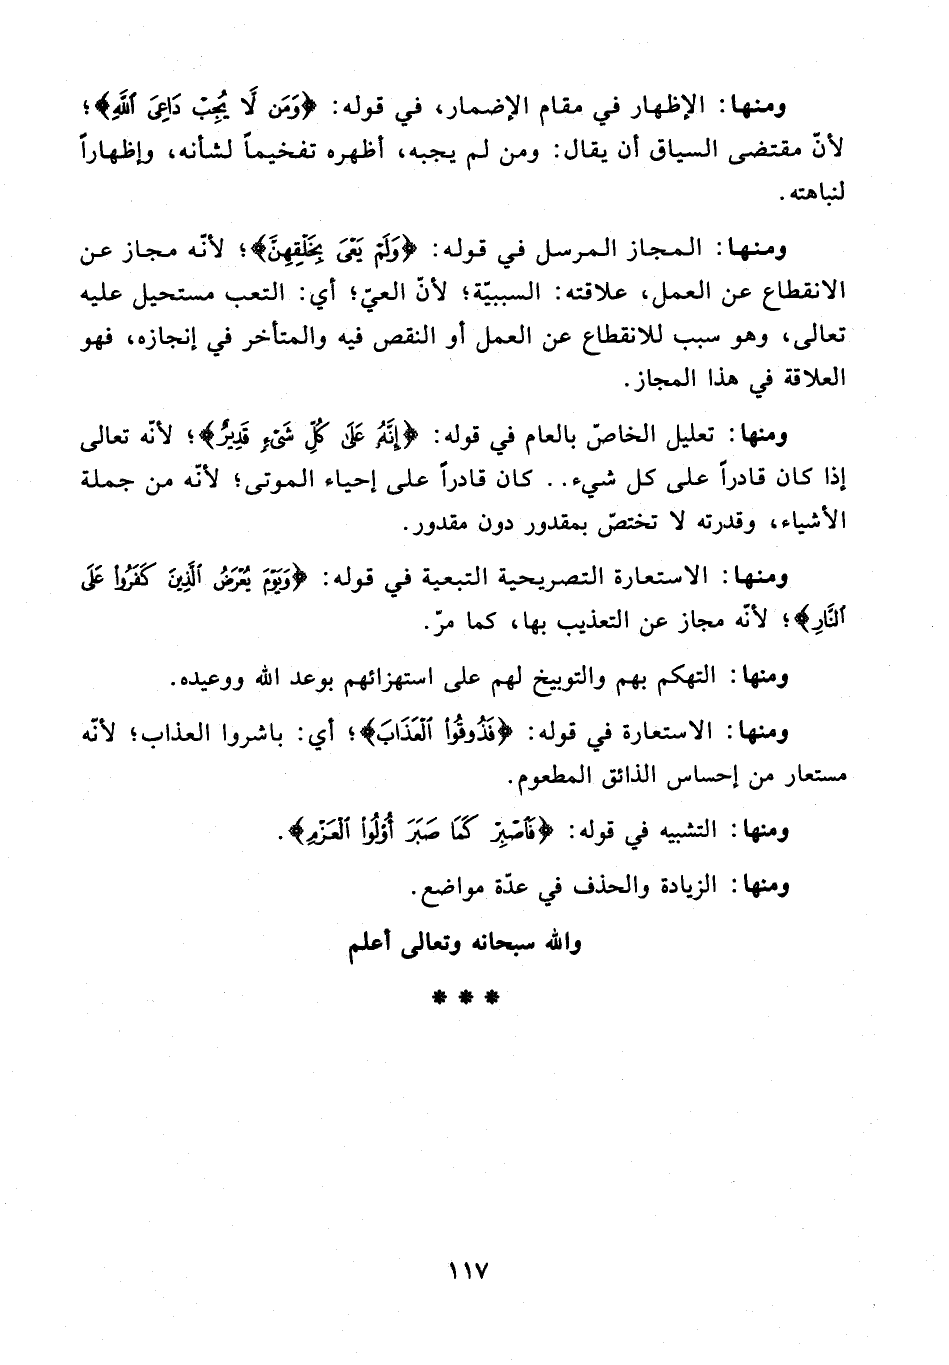 ومنها: الإظهار في مقام الإضمار، في قوله: ﴿وَمَن لَّا يُجِبْ دَاعِيَ ٱللَّهِ﴾؛
لأنّ مقتضى السياق أن يقال: ومن لم يجبه، أظهره تفخيماً لشأنه، وإظهاراً
لنباهته.
ومنها: المجاز المرسل في قوله: ﴿وَلَمْ يَعْىَ بِخَلْقِهِنَّ﴾؛ لأنّه مجاز عن
الانقطاع عن العمل، علاقته: السببيّة؛ لأنّ العيّ؛ أي: التعب مستحيل عليه
تعالى، وهو سبب للانقطاع عن العمل أو النقص فيه والمتأخر في إنجازه، فهو
العلاقة في هذا المجاز.
ومنها: تعليل الخاصّ بالعام في قوله: ﴿إِنَّهُ عَلَىٰ كُلِّ شَىْءٍ قَدِيرٌ﴾؛ لأنّه تعالى
إذا كان قادراً على كل شيء.. كان قادراً على إحياء الموتى؛ لأنّه من جملة
الأشياء، وقدرته لا تختصّ بمقدور دون مقدور.
ومنها: الاستعارة التصريحية التبعية في قوله: ﴿وَيَوْمَ يُعْرَضُ ٱلَّذِينَ كَفَرُوا۟ عَلَى
ٱلنَّارِ﴾؛ لأنّه مجاز عن التعذيب بها، كما مرّ.
ومنها: التهكم بهم والتوبيخ لهم على استهزائهم بوعد الله ووعيده.
ومنها: الاستعارة في قوله: ﴿فَذُوقُوا۟ ٱلْعَذَابَ﴾؛ أي: باشروا العذاب؛ لأنّه
مستعار من إحساس الذائق المطعوم.
ومنها: التشبيه في قوله: ﴿فَٱصْبِرْ كَمَا صَبَرَ أُو۟لُوا۟ ٱلْعَزْمِ﴾.
ومنها: الزيادة والحذف في عدّة مواضع.
والله سبحانه وتعالى أعلم
* * *
١١٧